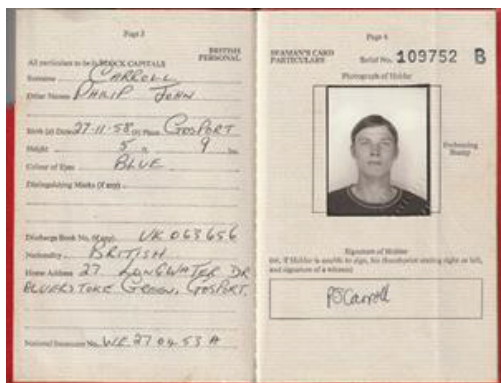 Page 3
BRITISH
PERSONAL
All particulars to be in BLOCK CAPITALS
Surname CARROLL
Other Names PHILIP JOHN
Birth (a) Date 27-11-58 (b) Place GOSPORT
Height 5 ft. 9 ins.
Colour of Eyes BLUE
Distinguishing Marks (if any)
Discharge Book No. (if any) UK 063656
Nationality BRITISH
Home Address 27 LONGWATER DR
ALVERSTOKE GREEN, GOSPORT.
National Insurance No. 27 04 53 A
Page 4
SEAMAN'S CARD
PARTICULARS
Serial No. 109752 B
Photograph of Holder
Embossing
Stamp
Signature of Holder
(or, if Holder is unable to sign, his thumbprint stating right or left,
and signature of a witness)
PJCarroll